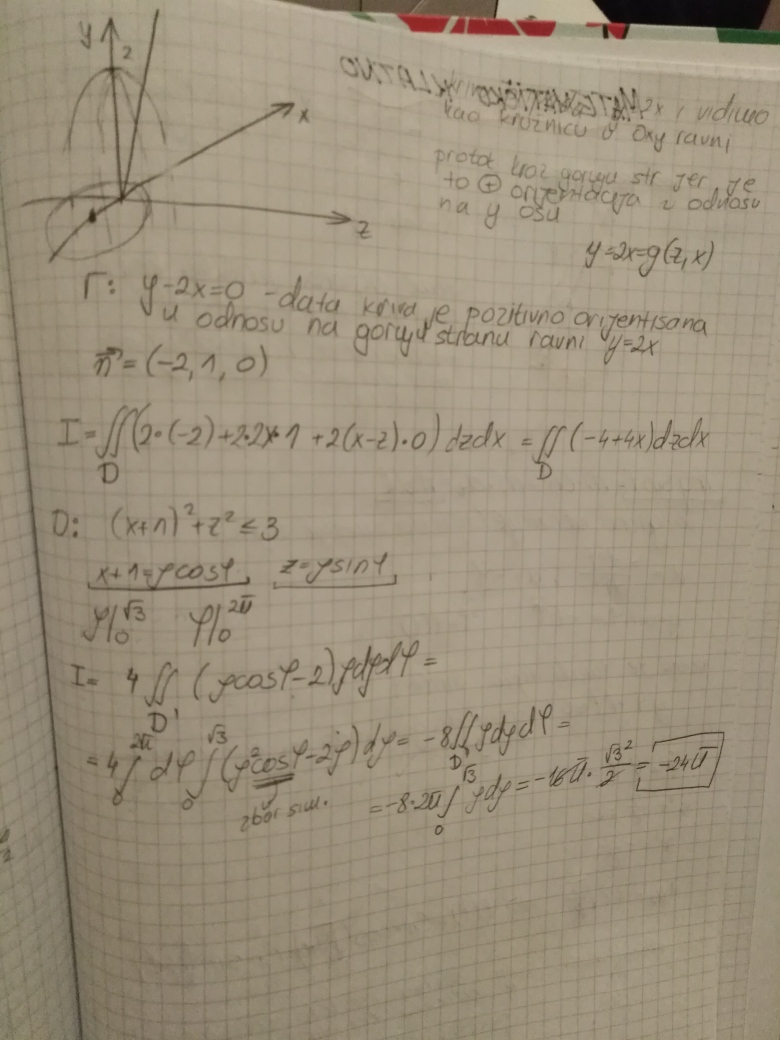 y
2
x
z
MATEMATIČKO KLATNO
2x i vidimo
kao kružnicu u Oxy ravni
protok kroz gornju str jer je
to ⊕ orijentacija u odnosu
na y osu
y=2x=g(z,x)
Γ: y-2x=0 - data kriva je pozitivno orijentisana
u odnosu na gornju stranu ravni y=2x
n⃗ = (-2,1,0)
I = ∬_D (2·(-2)+2·2x·1 + 2(x-z)·0) dzdx = ∬_D (-4+4x)dzdx
D: (x+1)² + z² ≤ 3
x+1=ρcosφ z=ρsinφ
ρ|₀^√3 φ|₀^2π
I = 4∬_D' (ρcosφ-2)ρdρdφ =
= 4∫₀^2π dφ ∫₀^√3 (ρ²cosφ-2ρ)dρ = -8∬_D' ρdρdφ =
zbog sim.
= -8·2π ∫₀^√3 ρdρ = -16π · √3²/2 = -24π